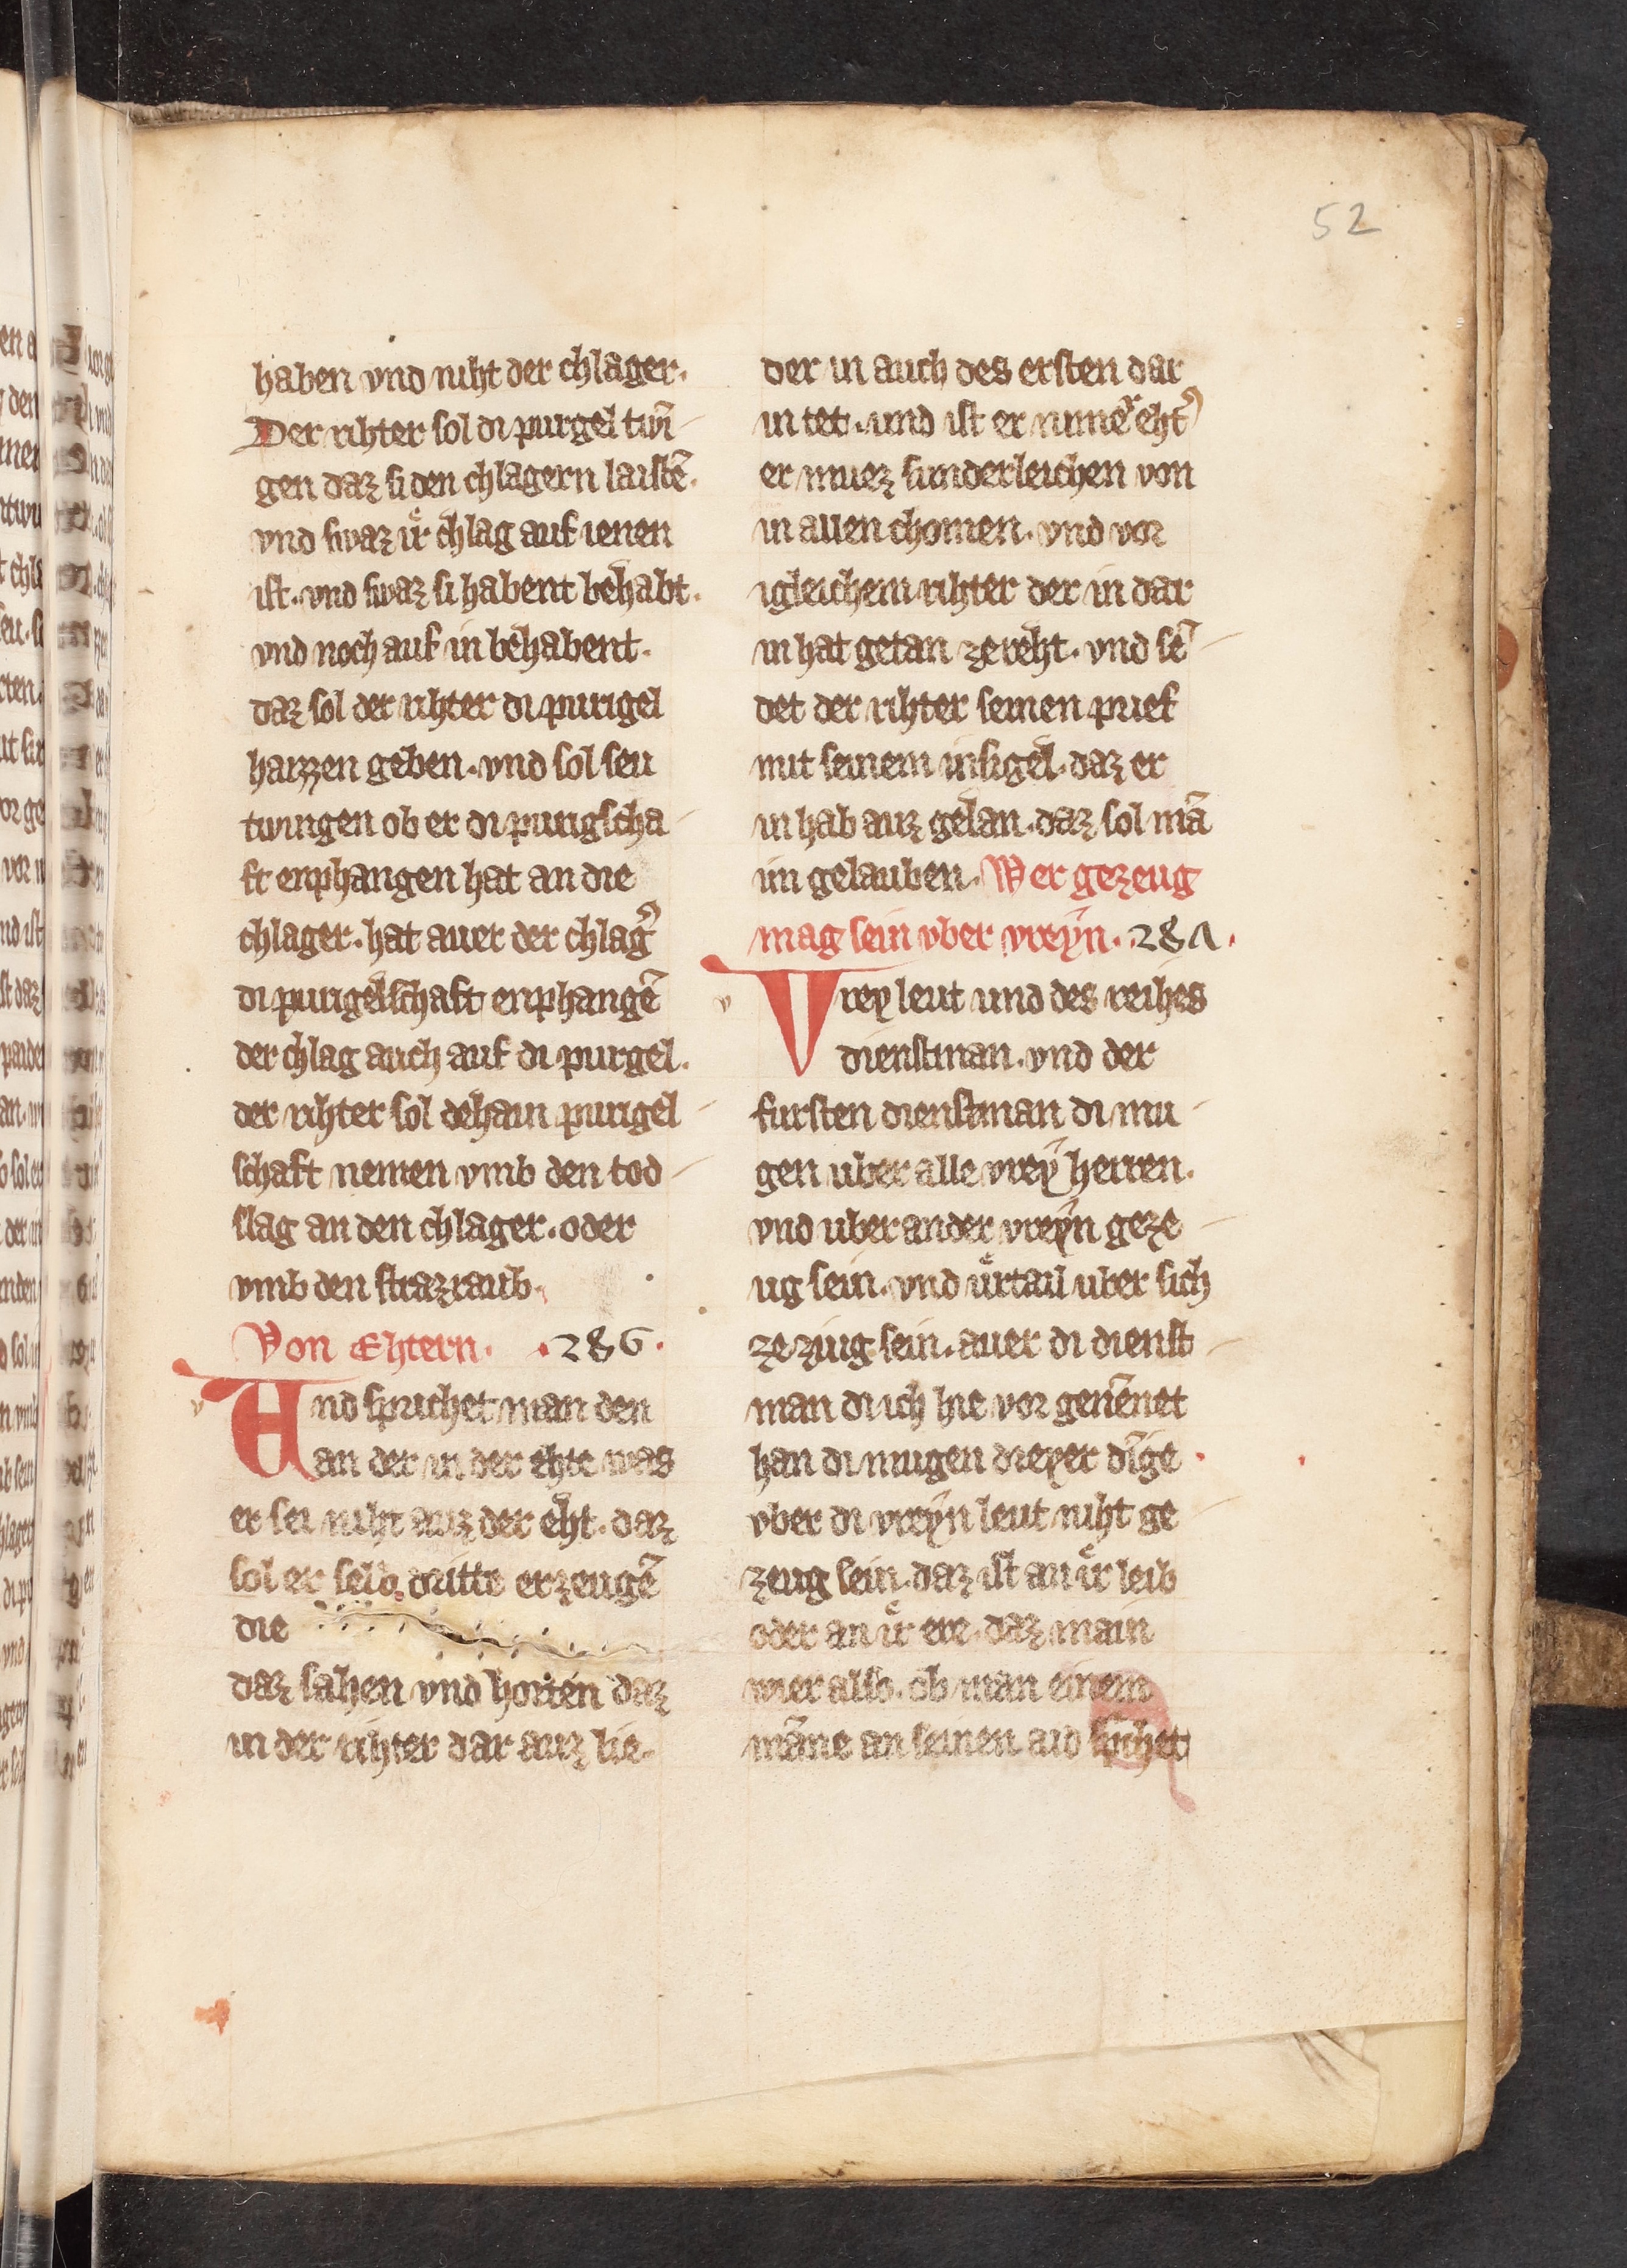 52
haben vnd niht der chlager.
Der rihter sol di purgel twī
gen daz si den chlagern laistē.
vnd swaz iͤr chlag auf ienen
ist. vnd swaz si habent behabt.
vnd noch auf in behabent.
daz sol der rihter di purigel
haizzen geben. vnd sol seu
twingen ob er di purigscha
ft enphangen hat an die
chlager. hat auer der chlagˀ
di purigelschaft enphangē
der chlag auch auf di purgel.
der rihter sol dehain purigel
schaft nemen vmb den tod
slag an den chlager. oder
vmb den strazraub.
Von Ehtern. .286.
Und sprichet man den
an der in der ehte was
er sei niht auz der eht. daz
sol er selb dritte erzeugē
die
daz sahen vnd horten daz
in der rihter dar auz lie.
der in auch des ersten dar
in tet. und ist er in mēˀ ehtˀ
er muez sunderleichen von
in allen chomen. vnd vor
igleichem rihter der in dar
in hat getan ze reht. vnd sē
det der rihter seinen prief
mit seinem insigel. daz er
in hab auz gelan. daz sol mā
im gelauben. Wer gezeug
mag sein vber vreyn. 287.
Vrey leut und des reihes
dienstman. vnd der
fursten dienstman di mu
gen uber alle vrey herren.
vnd uber ander vreyn geze
ug sein. vnd uͤrtail uber sich
ze ziug sein. auer di dienst
man di ich hie vor genēnet
han di mugen dreyer dīge
vber di vreyn leut niht ge
zeug sein. daz ist an iͤr leib
oder an iͤr ere. daz main
wier also. ob man einem
māne an seinen aid sprichet